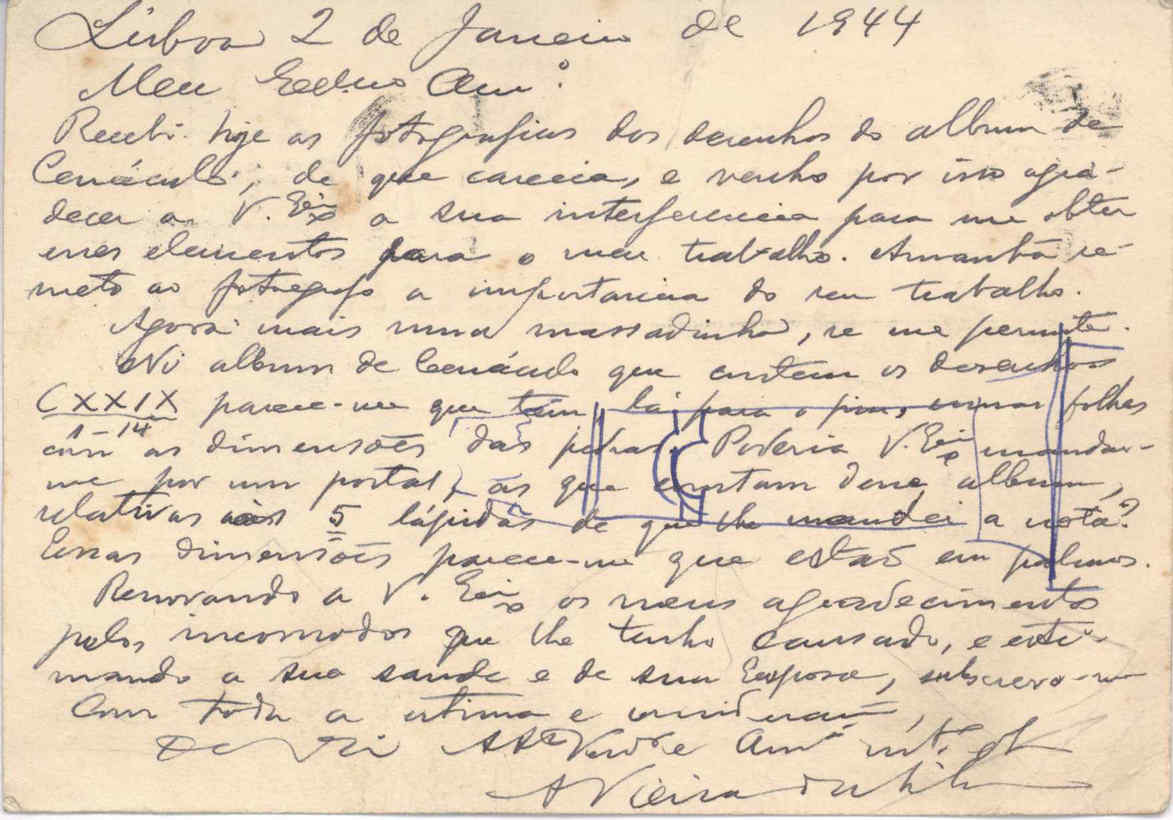 Lisboa 2 de Janeiro de 1944
Meu Exmo Amº.
Recebi hoje as fotografias dos desenhos do album de
Cenáculo, de que carecia, e venho por isso agra-
decer a V. Exia a sua interferencia para me obter
esses elementos para o meu trabalho. Amanhã re-
meto ao fotografo a importancia do seu trabalho.
Agora mais uma massadinha, se me permite.
No album de Cenáculo que contem os desenhos
CXXIX parece-me que tem, lá para o fim, umas folhas
1-14
com as dimensões das pedras. Poderia V. Exia mandar-
me por um postal, as que constam desse album,
relativas ás 5 lápidas de que lhe mandei a nota?
Essas dimensões parece-me que estão em palmos.
Renovando a V. Exia os meus agradecimentos
pelos incomodos que lhe tenho causado, e esti-
mando a sua saude e de sua Esposa, subscrevo-me
Com toda a estima e consideração,
De V. Exia Amº
A Vieira da Silva